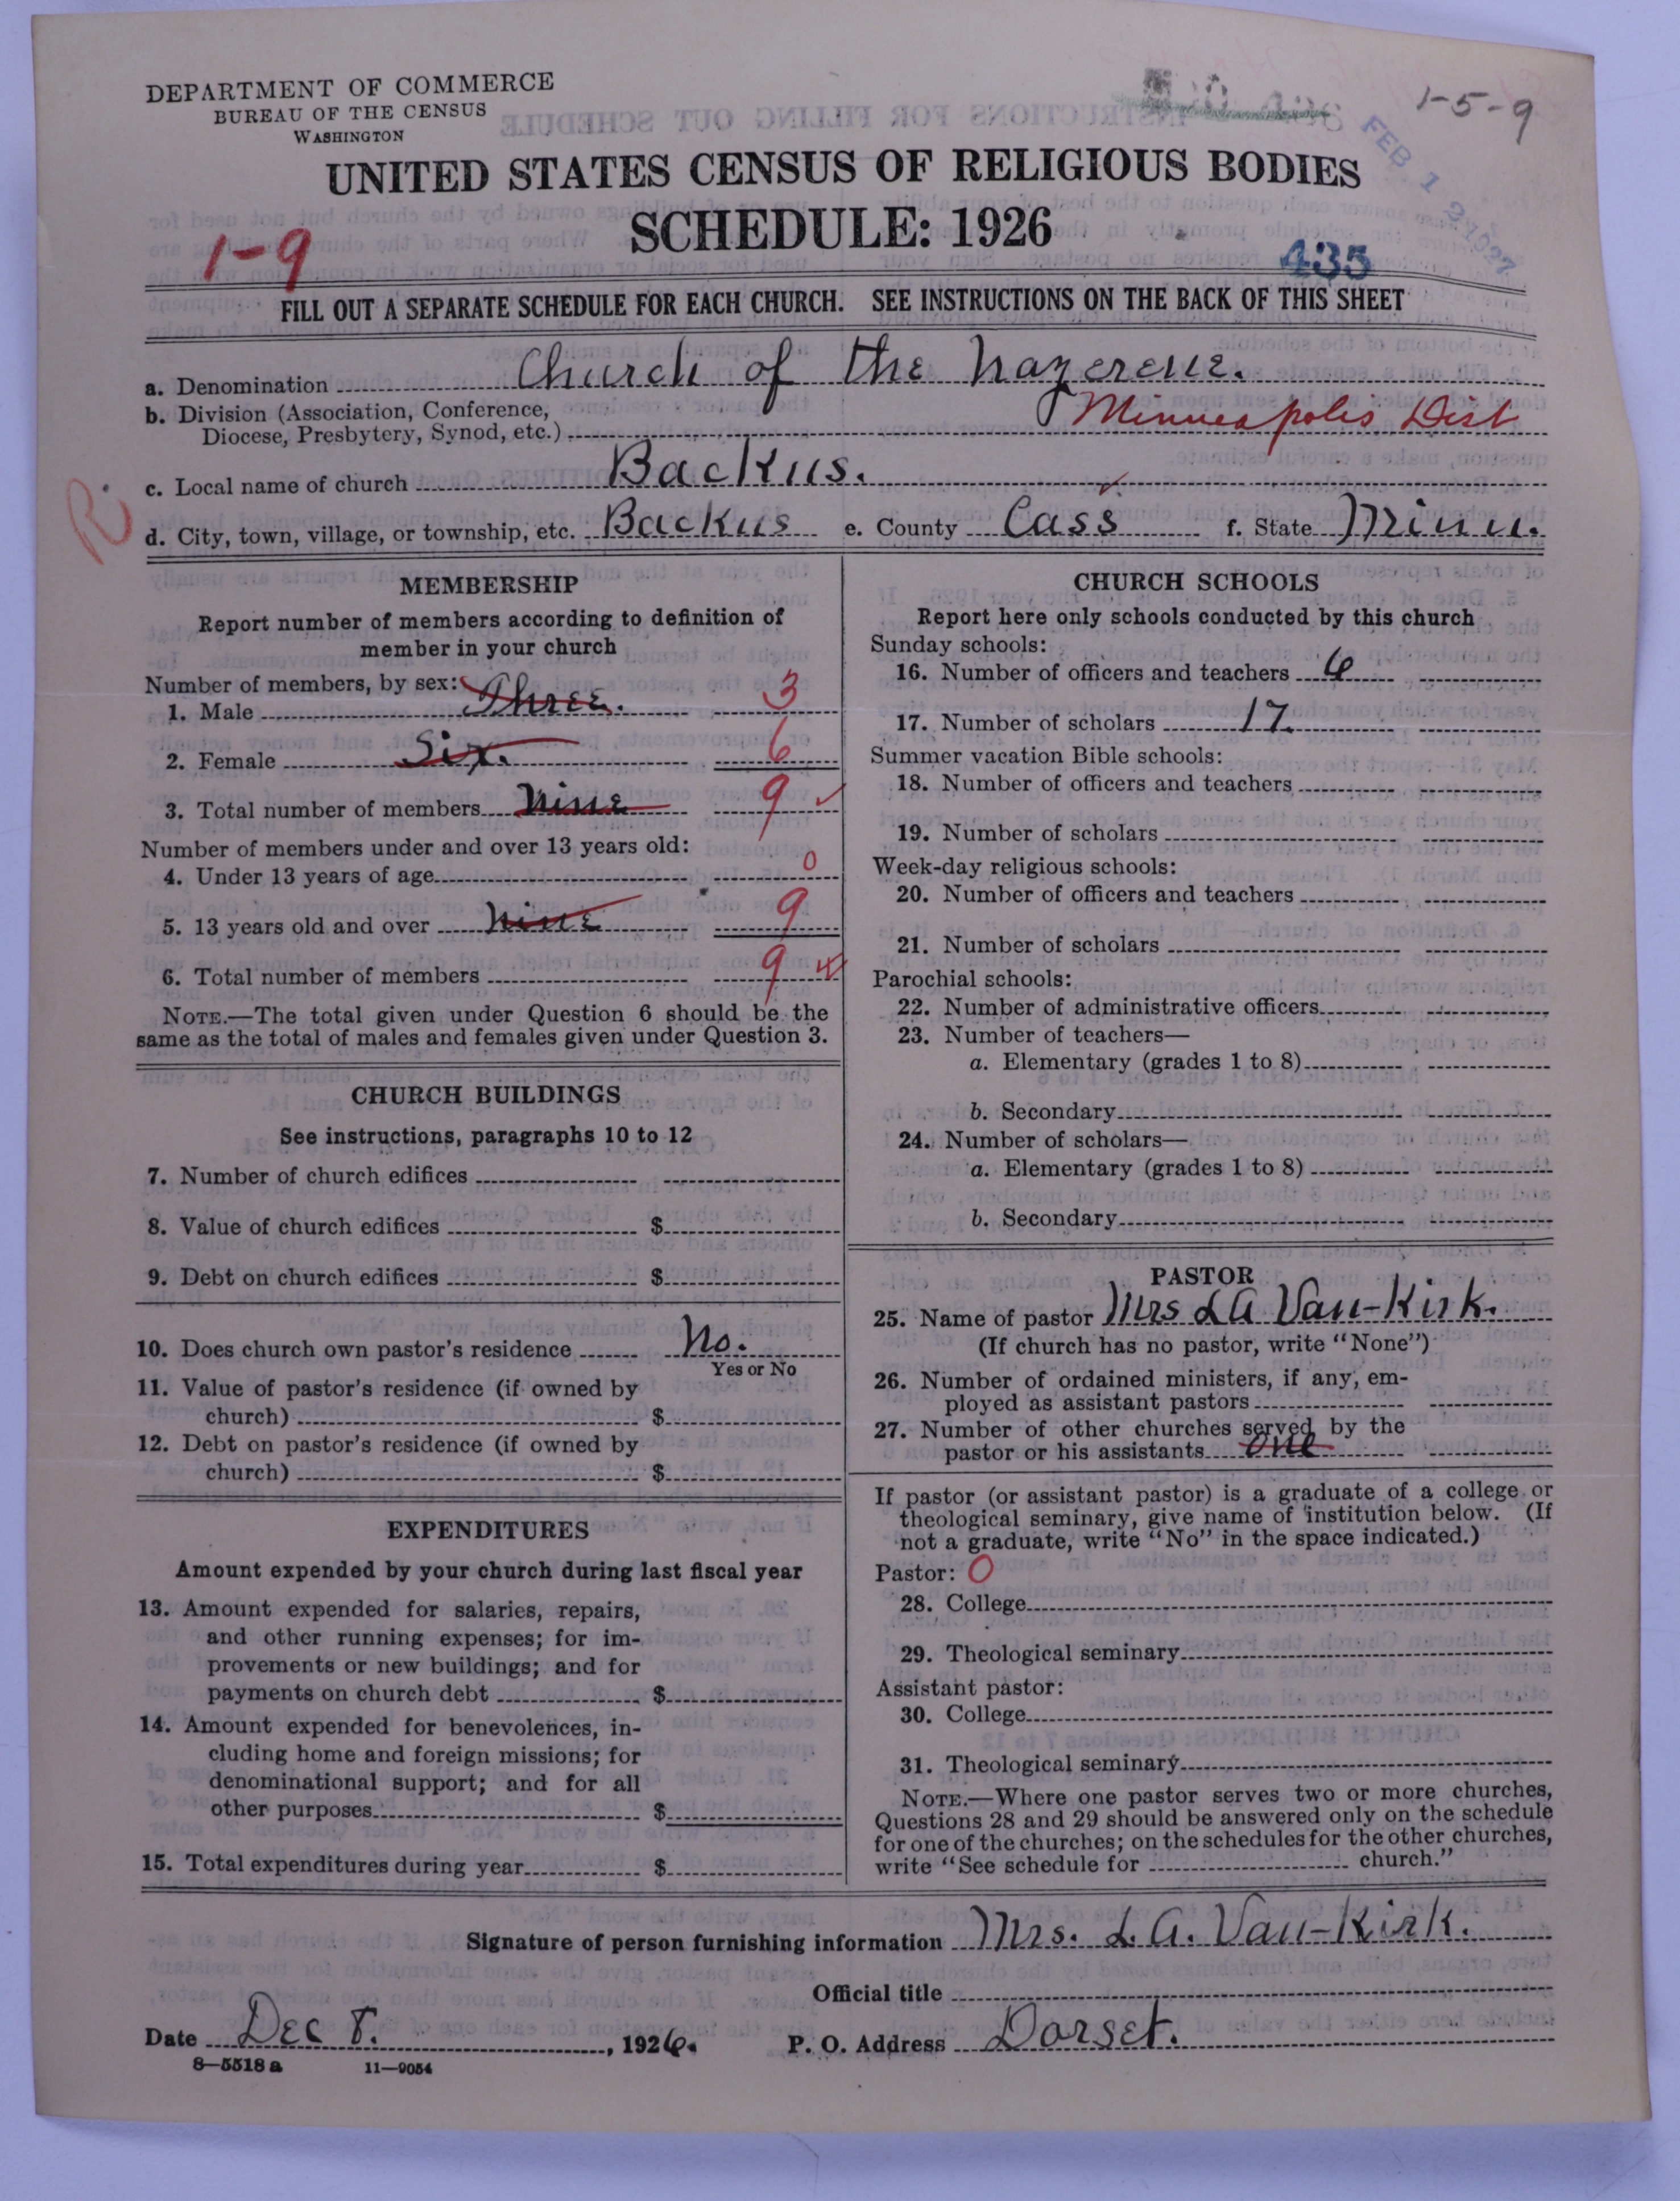 DEPARTMENT OF COMMERCE
BUREAU OF THE CENSUS
WASHINGTON
1-5-9
FEB 12 1927
UNITED STATES CENSUS OF RELIGIOUS BODIES
SCHEDULE: 1926
1-9
435
FILL OUT A SEPARATE SCHEDULE FOR EACH CHURCH. SEE INSTRUCTIONS ON THE BACK OF THIS SHEET
a. Denomination Church of the Nazerene.
b. Division (Association, Conference,
Diocese, Presbytery, Synod, etc.) Minneapolis Dist
c. Local name of church Backus.
R.
d. City, town, village, or township, etc. Backus e. County Cass f. State Minn.
MEMBERSHIP
Report number of members according to definition of
member in your church
Number of members, by sex:
1. Male Three. 3
2. Female Six. 6
3. Total number of members Nine 9
Number of members under and over 13 years old:
4. Under 13 years of age 0
5. 13 years old and over Nine 9
6. Total number of members 9
NOTE.—The total given under Question 6 should be the
same as the total of males and females given under Question 3.
CHURCH BUILDINGS
See instructions, paragraphs 10 to 12
7. Number of church edifices
8. Value of church edifices $
9. Debt on church edifices $
10. Does church own pastor's residence No.
Yes or No
11. Value of pastor's residence (if owned by
church) $
12. Debt on pastor's residence (if owned by
church) $
EXPENDITURES
Amount expended by your church during last fiscal year
13. Amount expended for salaries, repairs,
and other running expenses; for im-
provements or new buildings; and for
payments on church debt $
14. Amount expended for benevolences, in-
cluding home and foreign missions; for
denominational support; and for all
other purposes $
15. Total expenditures during year $
CHURCH SCHOOLS
Report here only schools conducted by this church
Sunday schools:
16. Number of officers and teachers 6
17. Number of scholars 17.
Summer vacation Bible schools:
18. Number of officers and teachers
19. Number of scholars
Week-day religious schools:
20. Number of officers and teachers
21. Number of scholars
Parochial schools:
22. Number of administrative officers
23. Number of teachers—
a. Elementary (grades 1 to 8)
b. Secondary
24. Number of scholars—
a. Elementary (grades 1 to 8)
b. Secondary
PASTOR
25. Name of pastor Mrs L A Van-Kirk.
(If church has no pastor, write "None")
26. Number of ordained ministers, if any, em-
ployed as assistant pastors
27. Number of other churches served by the
pastor or his assistants one
If pastor (or assistant pastor) is a graduate of a college or
theological seminary, give name of institution below. (If
not a graduate, write "No" in the space indicated.)
Pastor: 0
28. College
29. Theological seminary
Assistant pastor:
30. College
31. Theological seminary
NOTE.—Where one pastor serves two or more churches,
Questions 28 and 29 should be answered only on the schedule
for one of the churches; on the schedules for the other churches,
write "See schedule for church."
Signature of person furnishing information Mrs. L. A. Van-Kirk.
Official title
Date Dec 8. , 1926. P. O. Address Dorset.
8—5518 a 11—9054